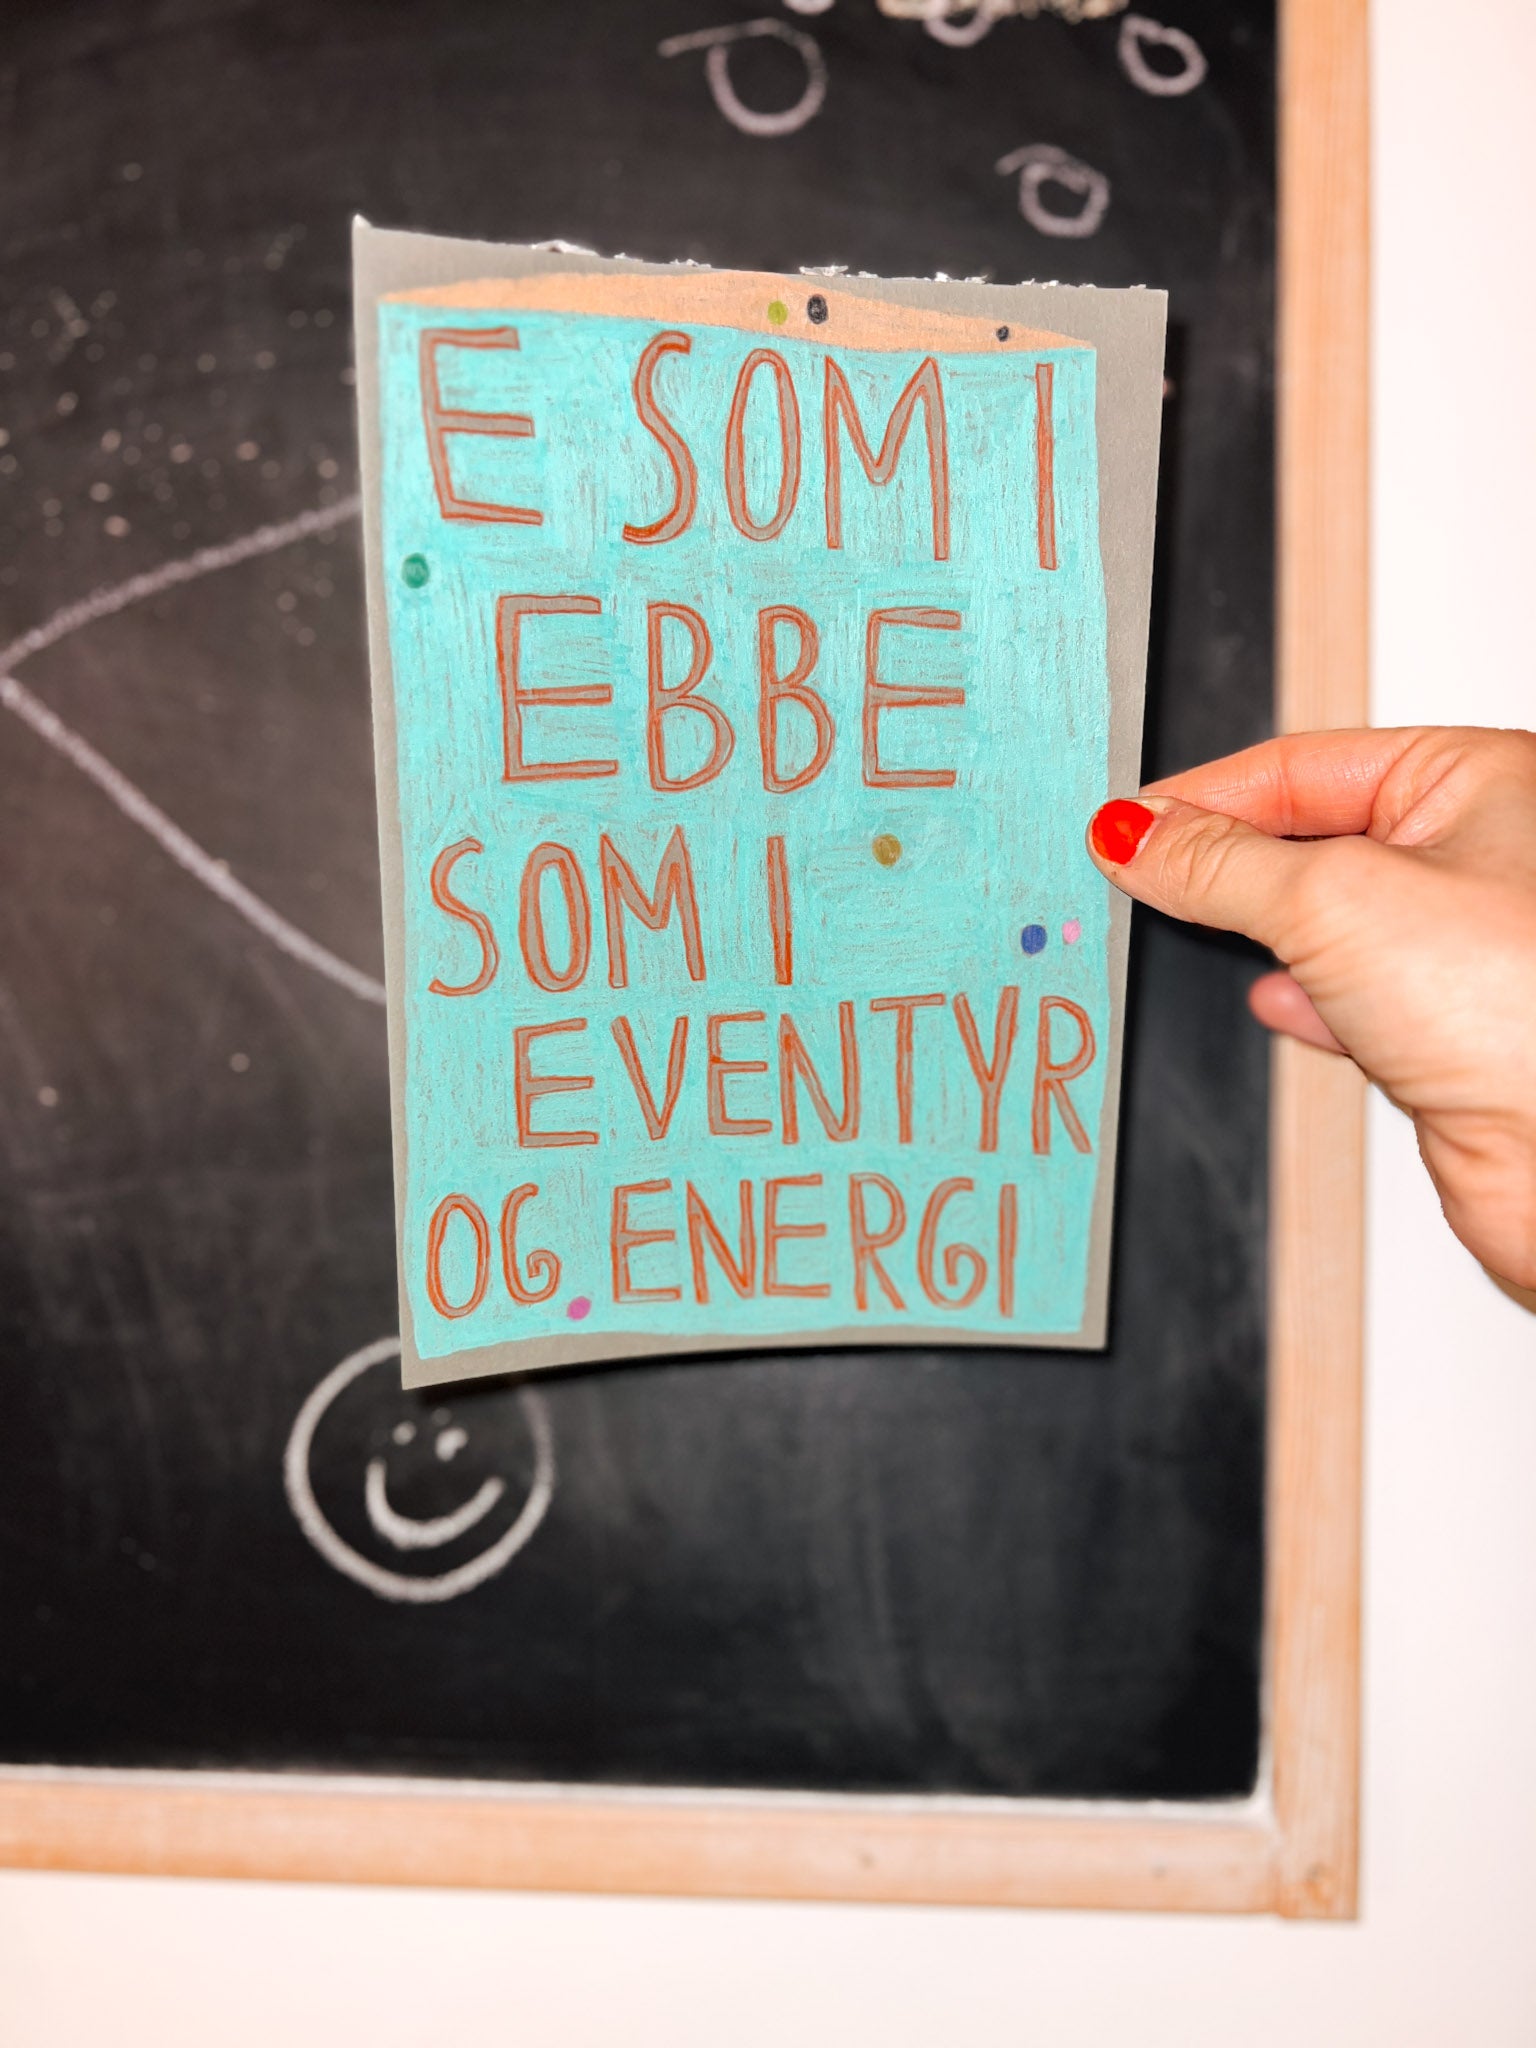 E SOM I
EBBE
SOM I
EVENTYR
OG ENERGI